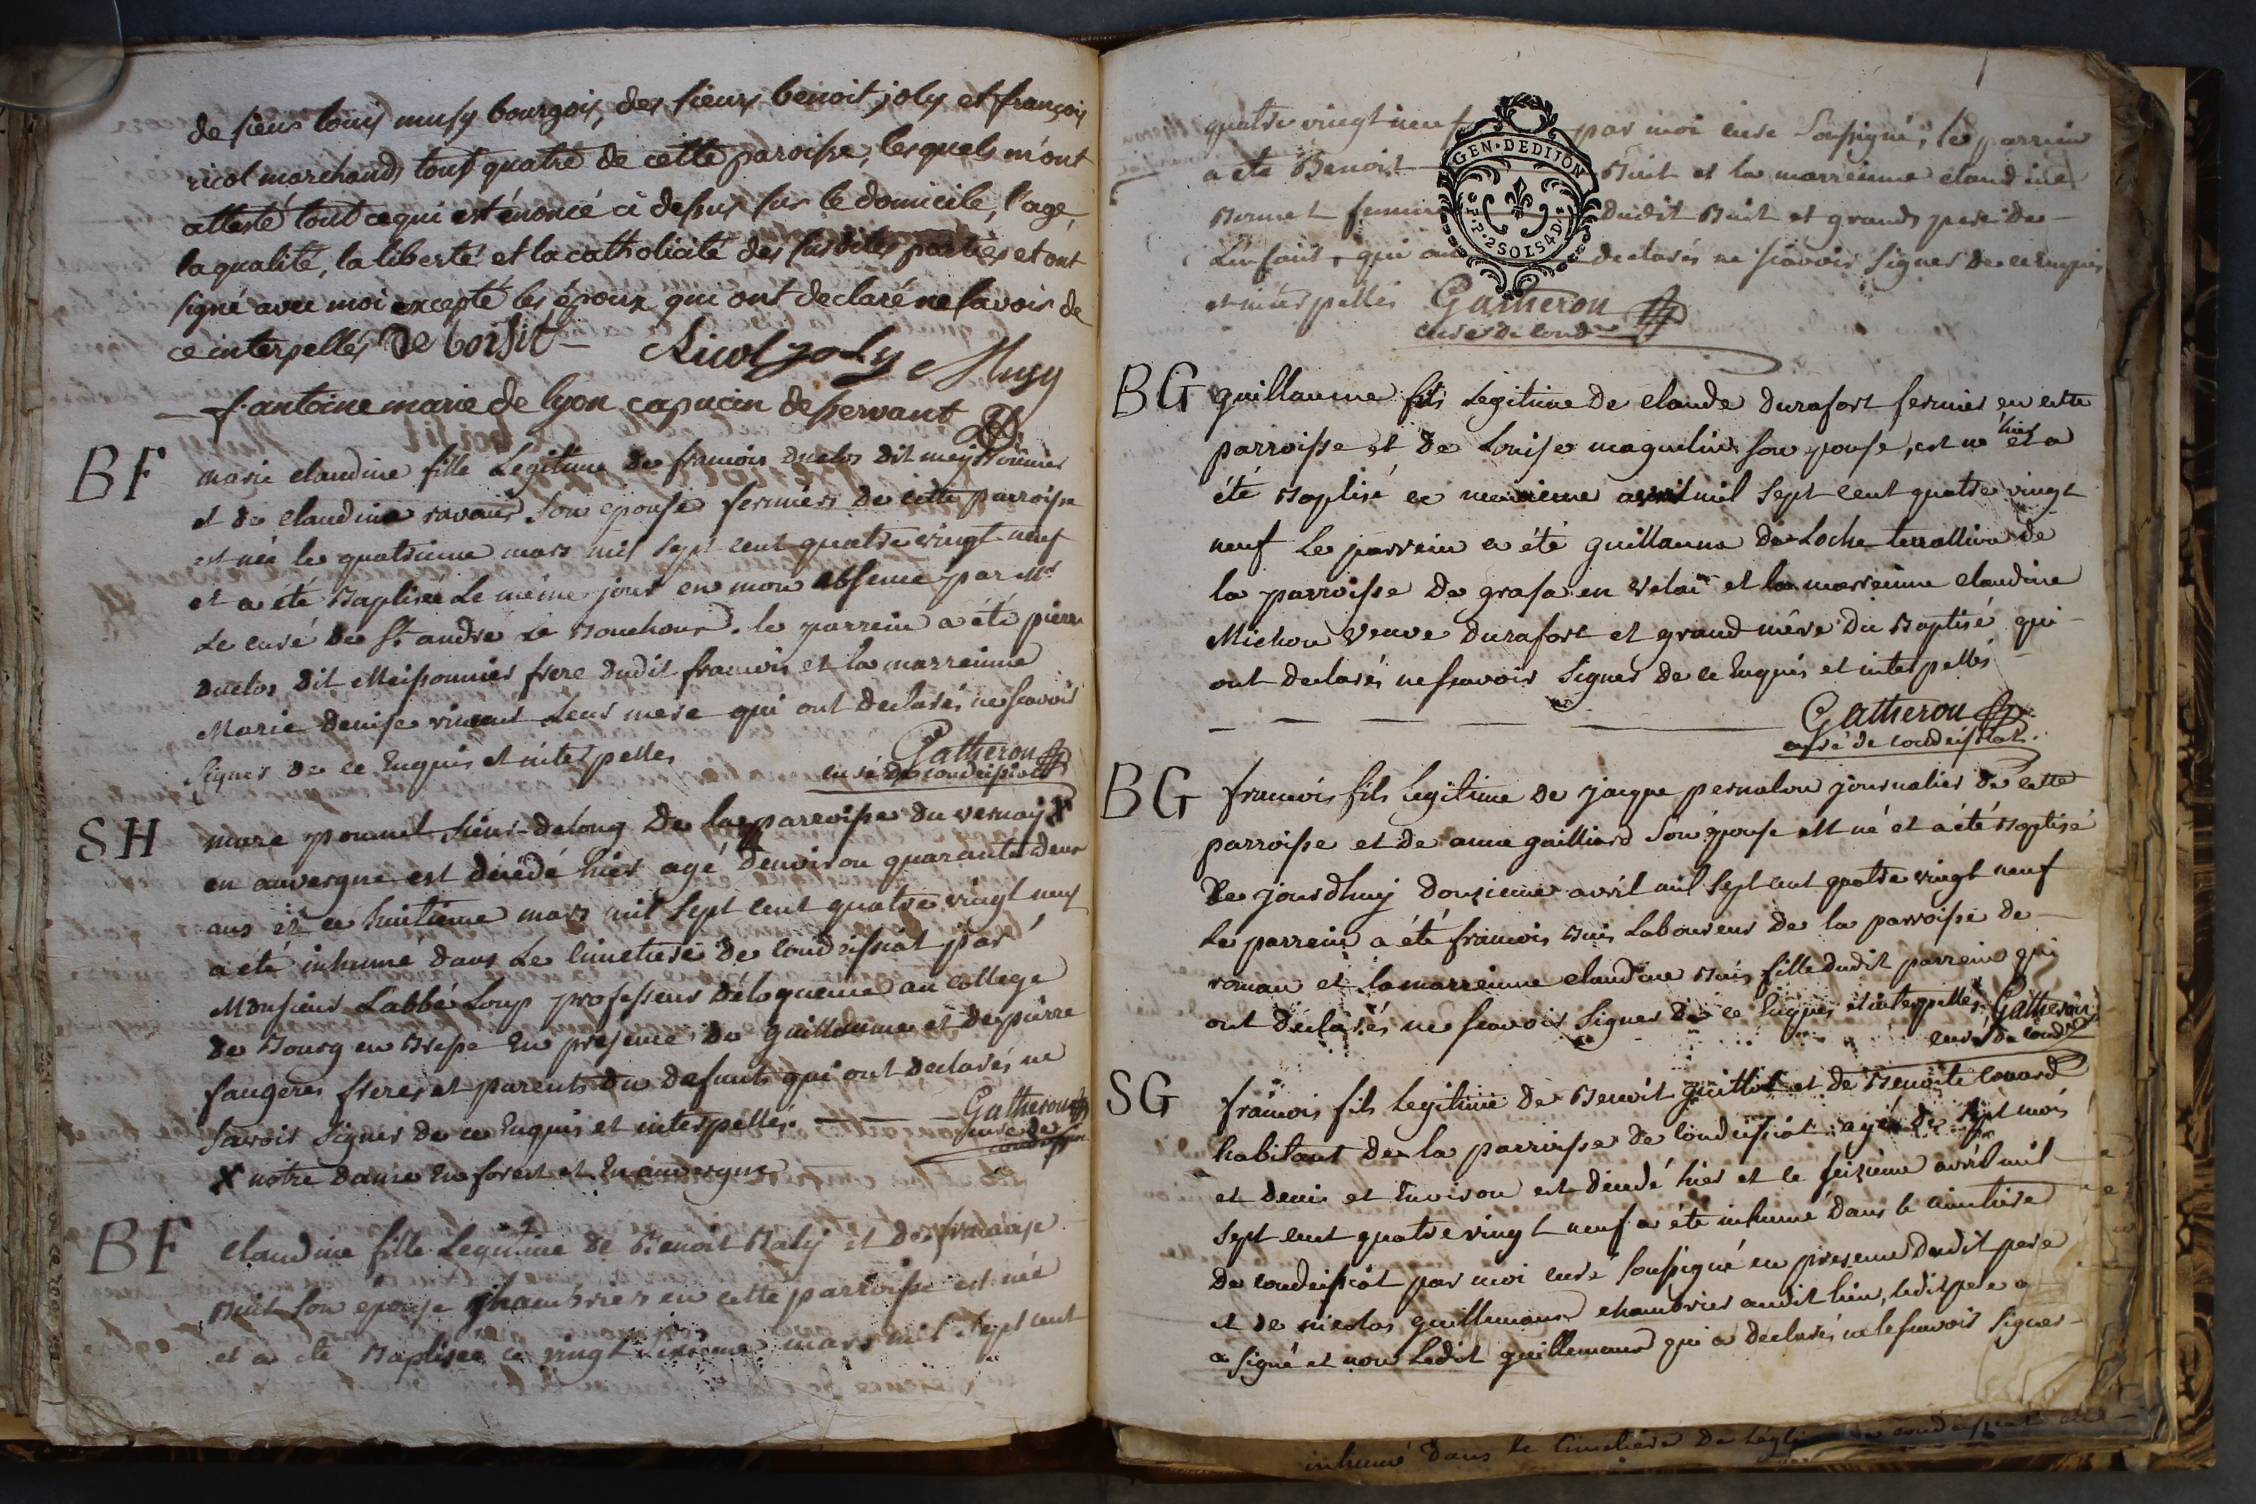 de sieur louis musy bourgois, des sieurs benoit joly et françois
ricol marchands tous quatre de cette paroisse, lesquels m'ont
attesté tout ce qui est énoncé ci dessus sur le domicile, l'age,
la qualité, la liberté et la catholicité des susdites parties et ont
signé avec moi excepté les époux qui ont declaré ne savoir de
ce interpellés De boisit
Ricol joly Musy
f. antoine marie de lyon capucin desservant
BF marie claudine fille Legitime de francois duclos dit meissonnier
et de claudine son epouse fermiers de cette parroisse
est née le quatrieme mars mil sept cent quatre vingt neuf
et a été Baptisée Le même jour en mon absence par Mr
Le curé de St andre Le Bouchoux. le parrein a été pierre
duclos dit Meissonnier frere dudit francois et la marreinne
Marie denise vincent Leur mere qui ont declarés ne scavoir
signer de ce Enquis et interpelles Gatheron
curé de condeissiat
SH marc pommet sieur de long De la parroisse du vernay X
en auvergne est décédé hier agé denviron quarante deux
ans et ce huitieme mars mil sept cent quatre vingt neuf
a été inhumé dans Le cimetiere de condeissiat par
Monsieur L'abbé Loup professeur d'éloquence au college
de Bourg en Bresse En presence de guillaume et de pierre
faugeres freres et parents du defunt qui ont declarés ne
savoir signer de ce Enquis et interpellés. Gatheron
curé de
condeissiat
X notre dame En forest et En auvergne
BF claudine fille Legitime de Benoit Baly et de francoise
Buit son epouse chambrier en cette parroisse est née
et a été Baptisée ce vingt sixieme mars mil sept cent
quatre vingt neuf par moi curé soussigné, le parrein
a été Benoit Buit et la marreinne claudine
femme dudit Buit et grands pere de
L'enfant, qui ont declarés ne scavoir signer de ce Enquis
et interpellés Gatheron
curé de cond
GEN·DE DIJON
2 SOLS 4 D
BG guillaume fils Legitime de claude durafort fermier en cette
parroisse et de Louise maquelin son epouse, est né hier et a
été Baptisé ce neuvieme avril mil sept cent quatre vingt
neuf Le parrein a été guillaume de Loche de
la parroisse de grasa en velai et la marreinne claudine
Michon veuve durafort et grand mére du Baptisé qui
ont declarés ne scavoir signer de ce Enquis et interpellés
Gatheron
curé de condeissiat.
BG francois fils legitime de jacque pernalon journalier de cette
parroisse et de anne gailliard son épouse est né et a été Baptisé
ce jourdhuy douzieme avril mil sept cent quatre vingt neuf
Le parrein a été francois Buis Laboureur de la parroisse de
roman et la marreinne claudine Buis fille dudit parrein qui
ont declarés ne scavoir signer de ce Enquis et interpellés. Gatheron
curé de cond
SG francois fils legitime de Benoit guillot et de Benoite Couard
habitant de la parroisse de condeissiat agé de sept mois
et demi et Environ est décédé hier et ce seizieme avril mil
sept cent quatre vingt neuf a été inhumé dans le cimetiere
de condeissiat par moi curé soussigné en presence dudit pere
et de nicolas guillemaux chambrier audit lieu, ledit pere a
a signé et non Ledit guillemaux qui a declarés ne le scavoir signer
inhumé dans le cimetiere de L'eglise de condeissiat